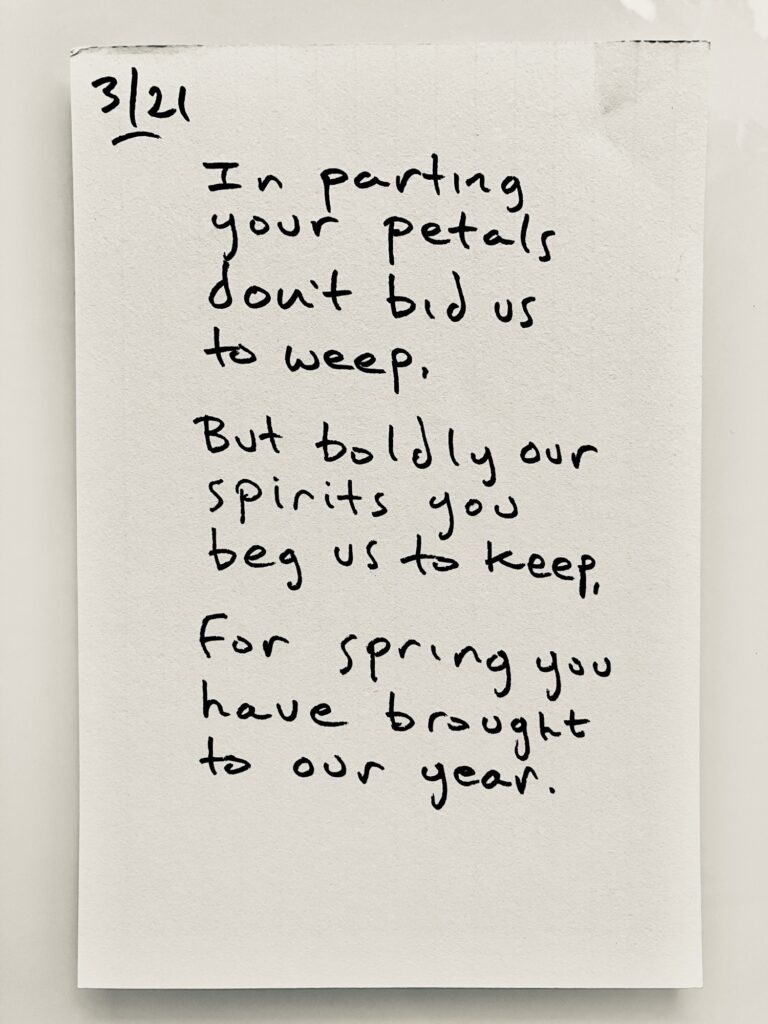 3/21
In parting
your petals
don't bid us
to weep,
But boldly our
spirits you
beg us to keep,
For spring you
have brought
to our year.